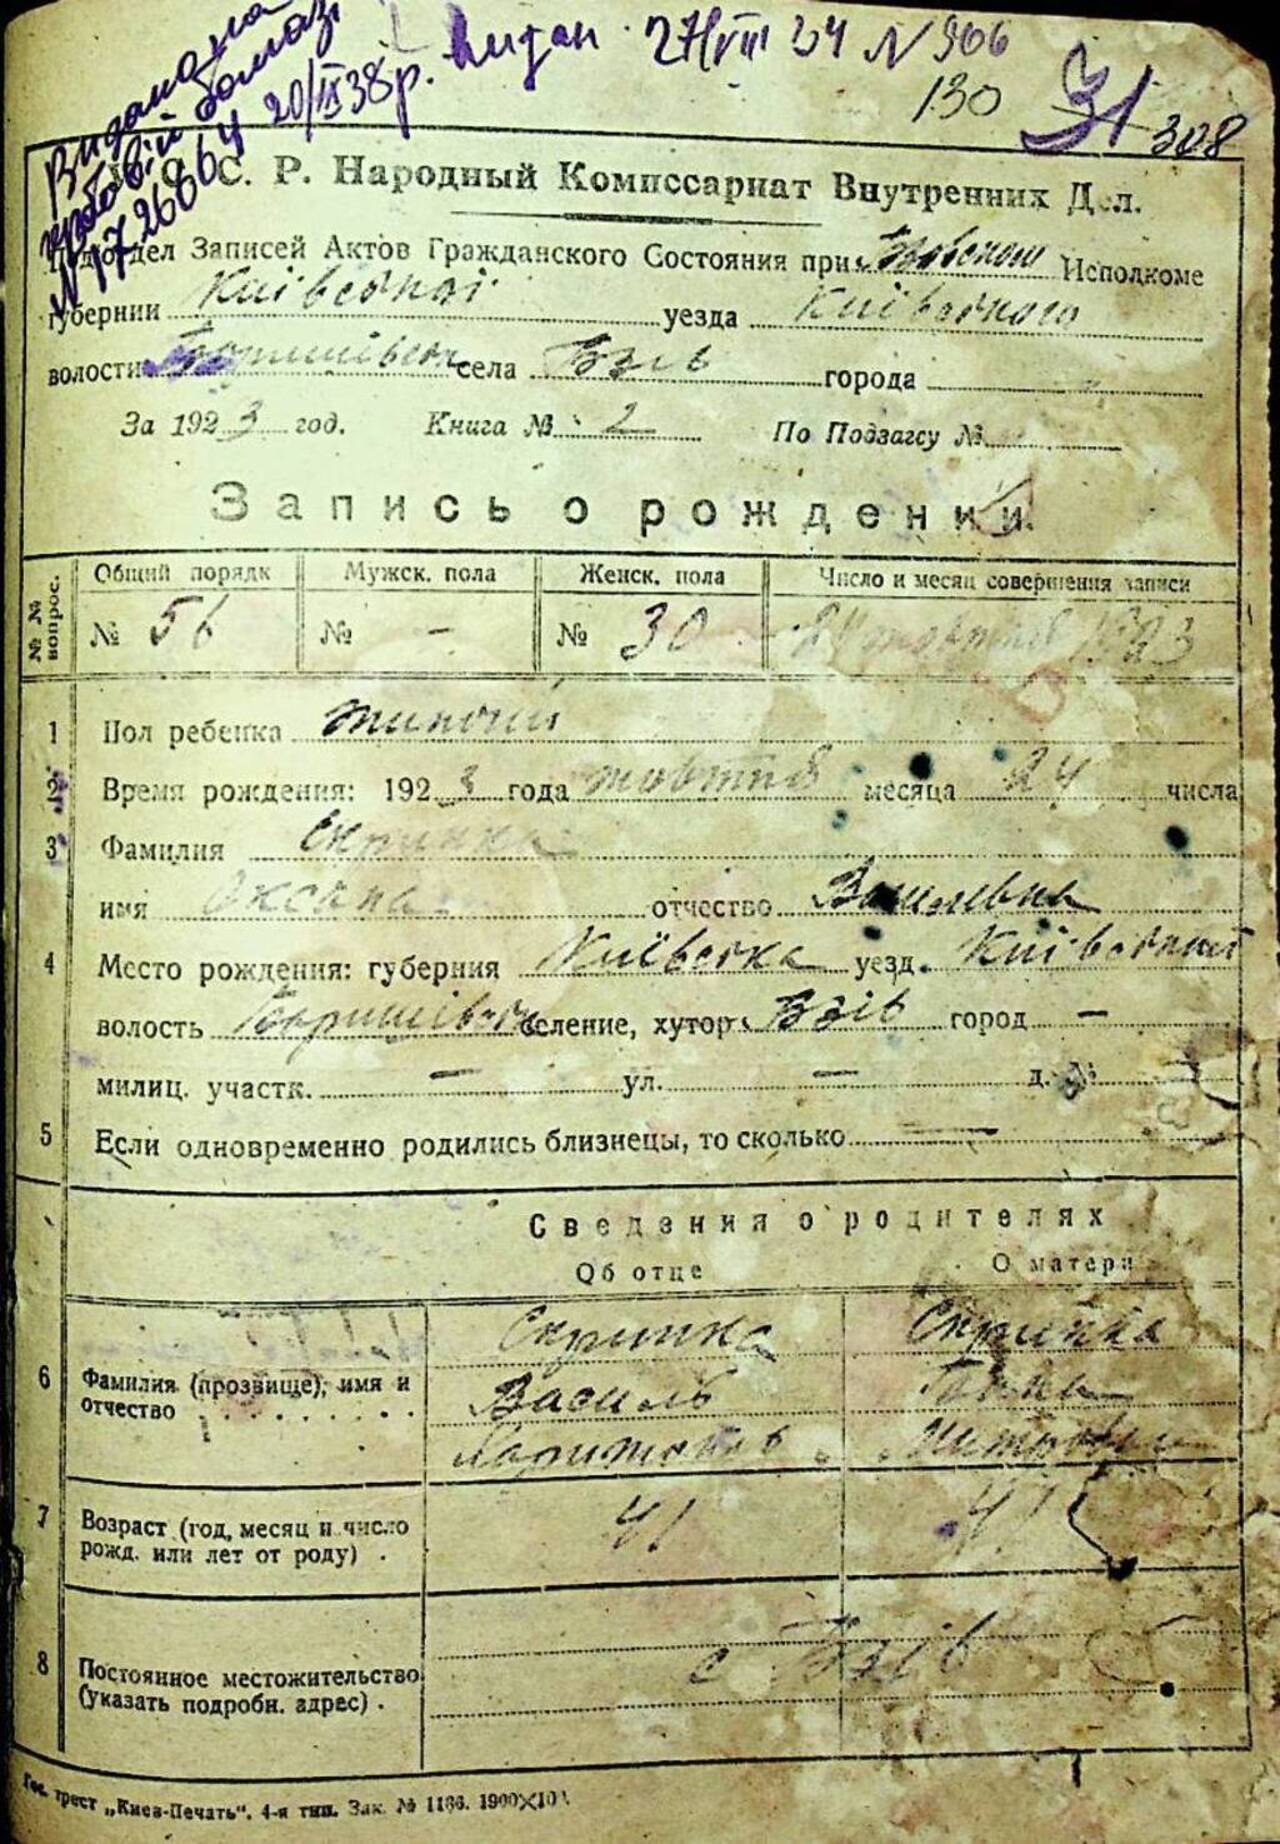 Видан 27/VIII 34 N 906
Видана
N 1726864 20/IX 38р.
130 31 308
С. Р. Народный Комиссариат Внутренних Дел.
Подотдел Записей Актов Гражданского Состояния при Исполкоме
губернии Київської уезда Київського
волости села Бзів города
За 1923 год. Книга № 2 По Подзагсу №
Запись о рождении.
№№ вопрос.
Общий порядк Мужск. пола Женск. пола Число и месяц совершения записи
№ 56 № - № 30 24 жовтня 1923
1 Пол ребенка жиночий
2 Время рождения: 1923 года жовтня месяца 24 числа
3 Фамилия Скрипка
имя Оксана отчество Василевна
4 Место рождения: губерния Київська уезд. Київський
волость селение, хутор Бзів город —
милиц. участк. — ул. — д. №
5 Если одновременно родились близнецы, то сколько —
Сведения о родителях
Об отце О матери
6 Фамилия (прозвище), имя и отчество
Скрипка Скрипка
Василь
7 Возраст (год, месяц и число рожд. или лет от роду) .
41 41
8 Постоянное местожительство (указать подробн. адрес) .
с Бзів
Гос. трест „Киев-Печать". 4-я тип. Зак. № 1166. 1900×10